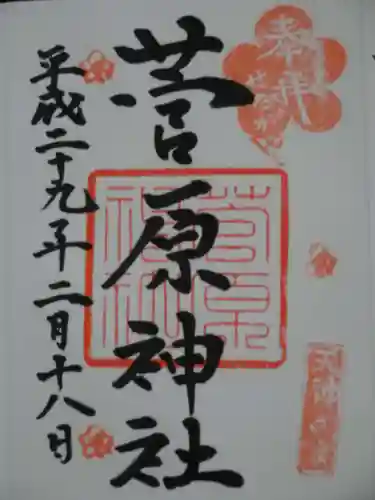 奉拝
菅原神社
菅原神社
平成二十九年二月十八日